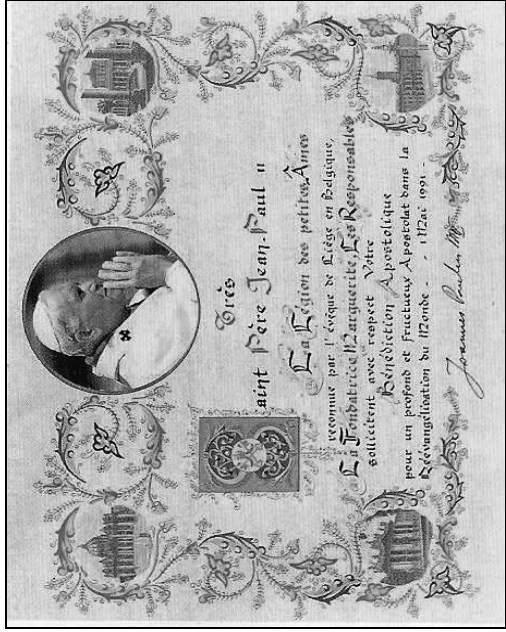 Très
Saint Père Jean-Paul II
La Légion des petites Âmes
reconnue par l'évêque de Liège en Belgique,
La Fondatrice Marguerite, Les Responsables
sollicitent avec respect Votre
Bénédiction Apostolique
pour un profond et fructueux Apostolat dans la
Réévangélisation du Monde - - 1 Mai 1991
Joannes Paulus